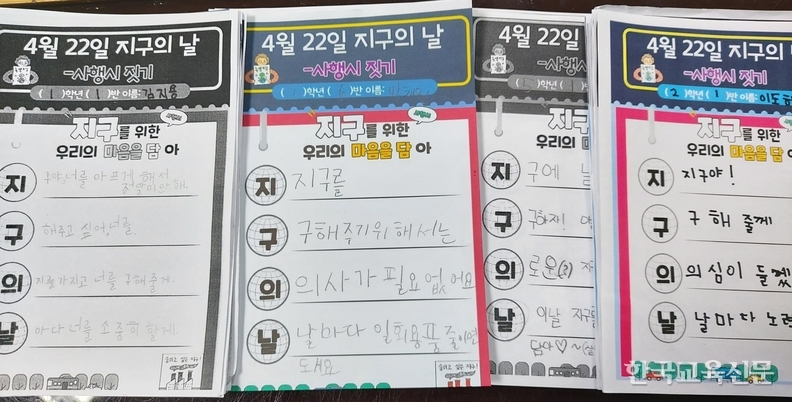 4월 22일 지구의 날
-사행시 짓기
( 1 )학년 ( 1 )반 이름: 김지용
지구를 위한
우리의 마음을 담 아
지 구야, 너를 아프게 해서
정말 미안해.
구 해주고 싶어, 너를
의 지를 가지고 너를 구해줄게.
날 마다 너를 소중히 할게.
4월 22일 지구의 날
-사행시 짓기
)학년 ( )반 이름:
지구를 위한
우리의 마음을 담 아
지 지구를
구 구해주기위해서는
의 의사가 필요없어요
날 날마다 일회용품 줄이면
되요
4월 22일 지구
-사행시 짓기
)학년 ( )반
지구를 위한
우리의 마음을 담
지 구에
구 구하자!
의 로운(?)
날 이날 지구를
담아♡~
4월 22일 지구의 날
-사행시 짓기
( 2 )학년 ( 1 )반 이름: 이도
지구를 위한
우리의 마음을 담 아
지 지구야!
구 구해 줄게
의 의심이 들겠
날 날마다 노력
한국교육신문